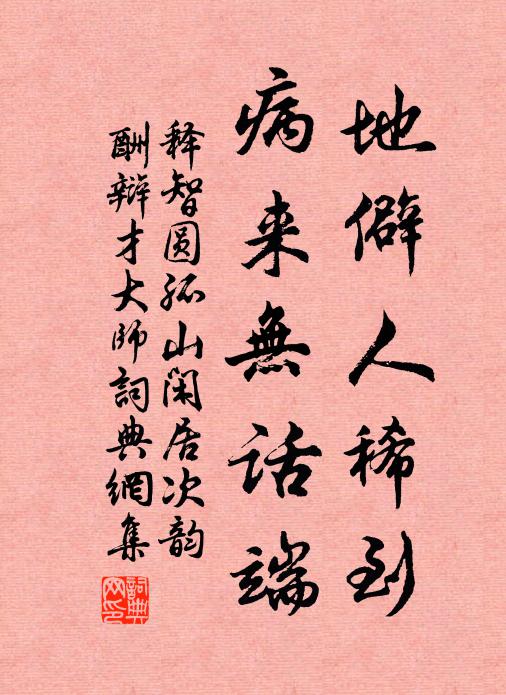 地僻人稀到
病来無話端
释智圆孤山闲居次韵
酬辩才大师詞典網集
詞典網印